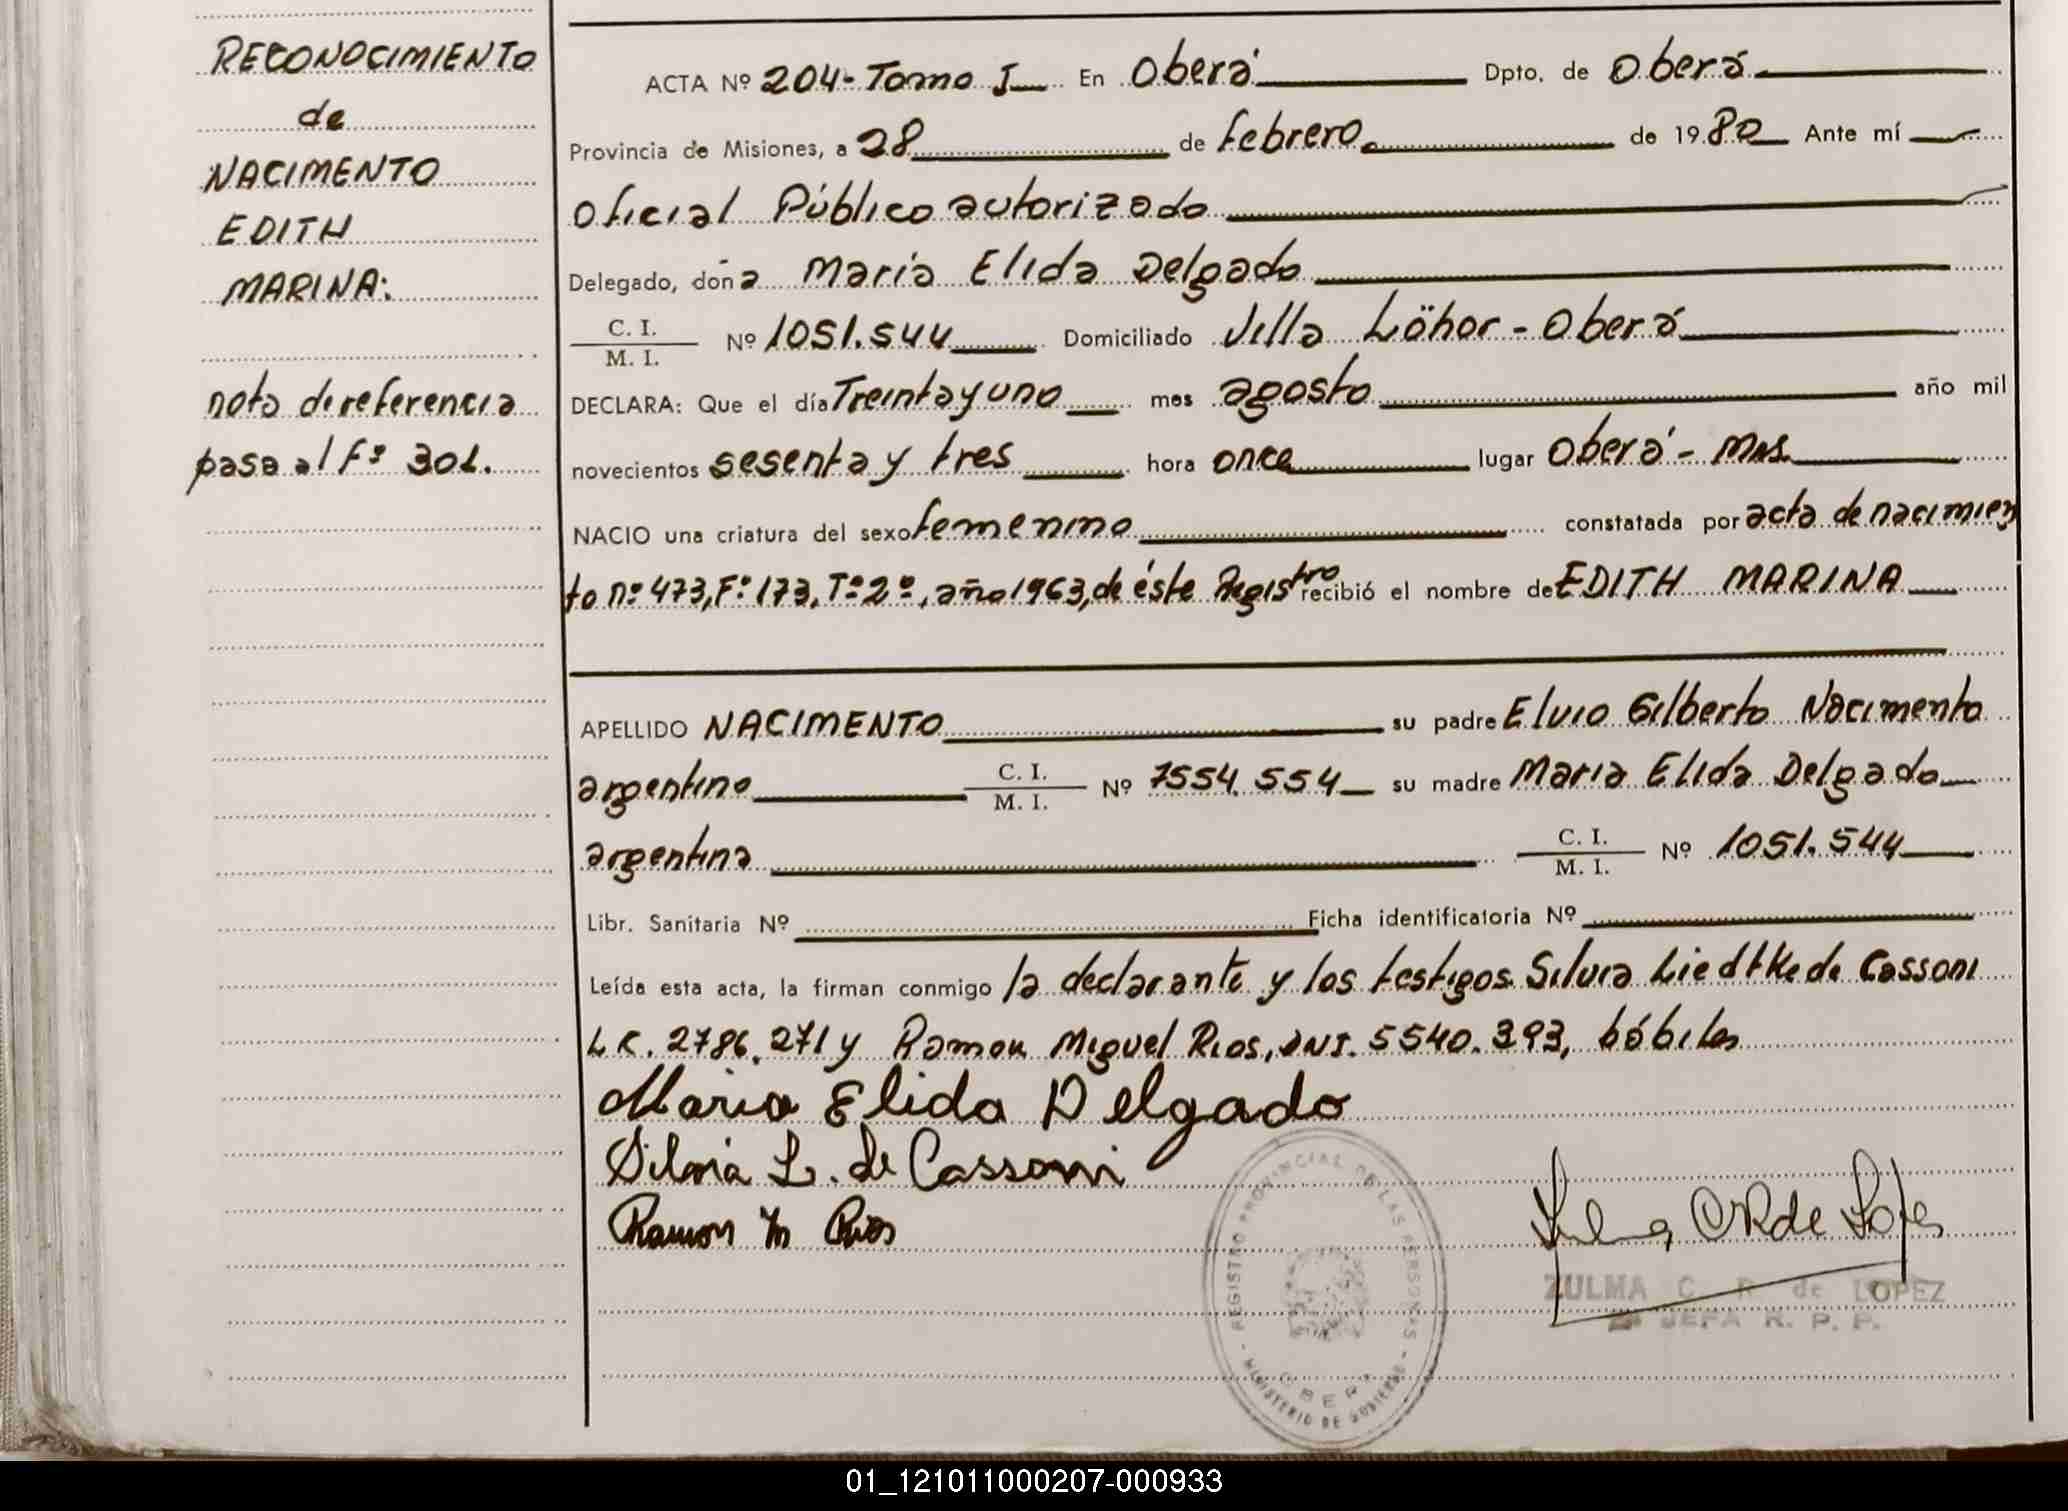 RECONOCIMIENTO
de
NACIMENTO
EDITH
MARINA:
nota de referencia
pasa al Fº 301.
ACTA Nº 204- Tomo I En Oberá Dpto. de Oberá
Provincia de Misiones, a 28 de febrero de 1980 Ante mí
Oficial Público autorizado
Delegado, doña María Elida Delgado
C. I. / M. I. Nº 1051.544 Domiciliado Villa Löhor - Oberá
DECLARA: Que el día Treinta y uno mes agosto año mil
novecientos sesenta y tres hora once lugar Oberá - Mns.
NACIO una criatura del sexo femenino constatada por acta de nacimien
to nº 473, Fº 173, Tº 2º, año 1963, de éste Registro recibió el nombre de EDITH MARINA
APELLIDO NACIMENTO su padre Elvio Gilberto Nacimento
argentino C. I. / M. I. Nº 7554.554 su madre María Elida Delgado
argentina C. I. / M. I. Nº 1051.544
Libr. Sanitaria Nº Ficha identificatoria Nº
Leída esta acta, la firman conmigo la declarante y los testigos Silvia Liedtke de Cassoni
L.C. 2786.271 y Ramon Miguel Rios, DNI. 5540.393, hábiles
Maria Elida Delgado
Silvia L. de Cassoni
Ramon M Rios
REGISTRO PROVINCIAL DE LAS PERSONAS
OBERA
MINISTERIO DE GOBIERNO
Zulma C R de Lopez
ZULMA C. R. de LOPEZ
JEFA R. P. P.
01_121011000207-000933